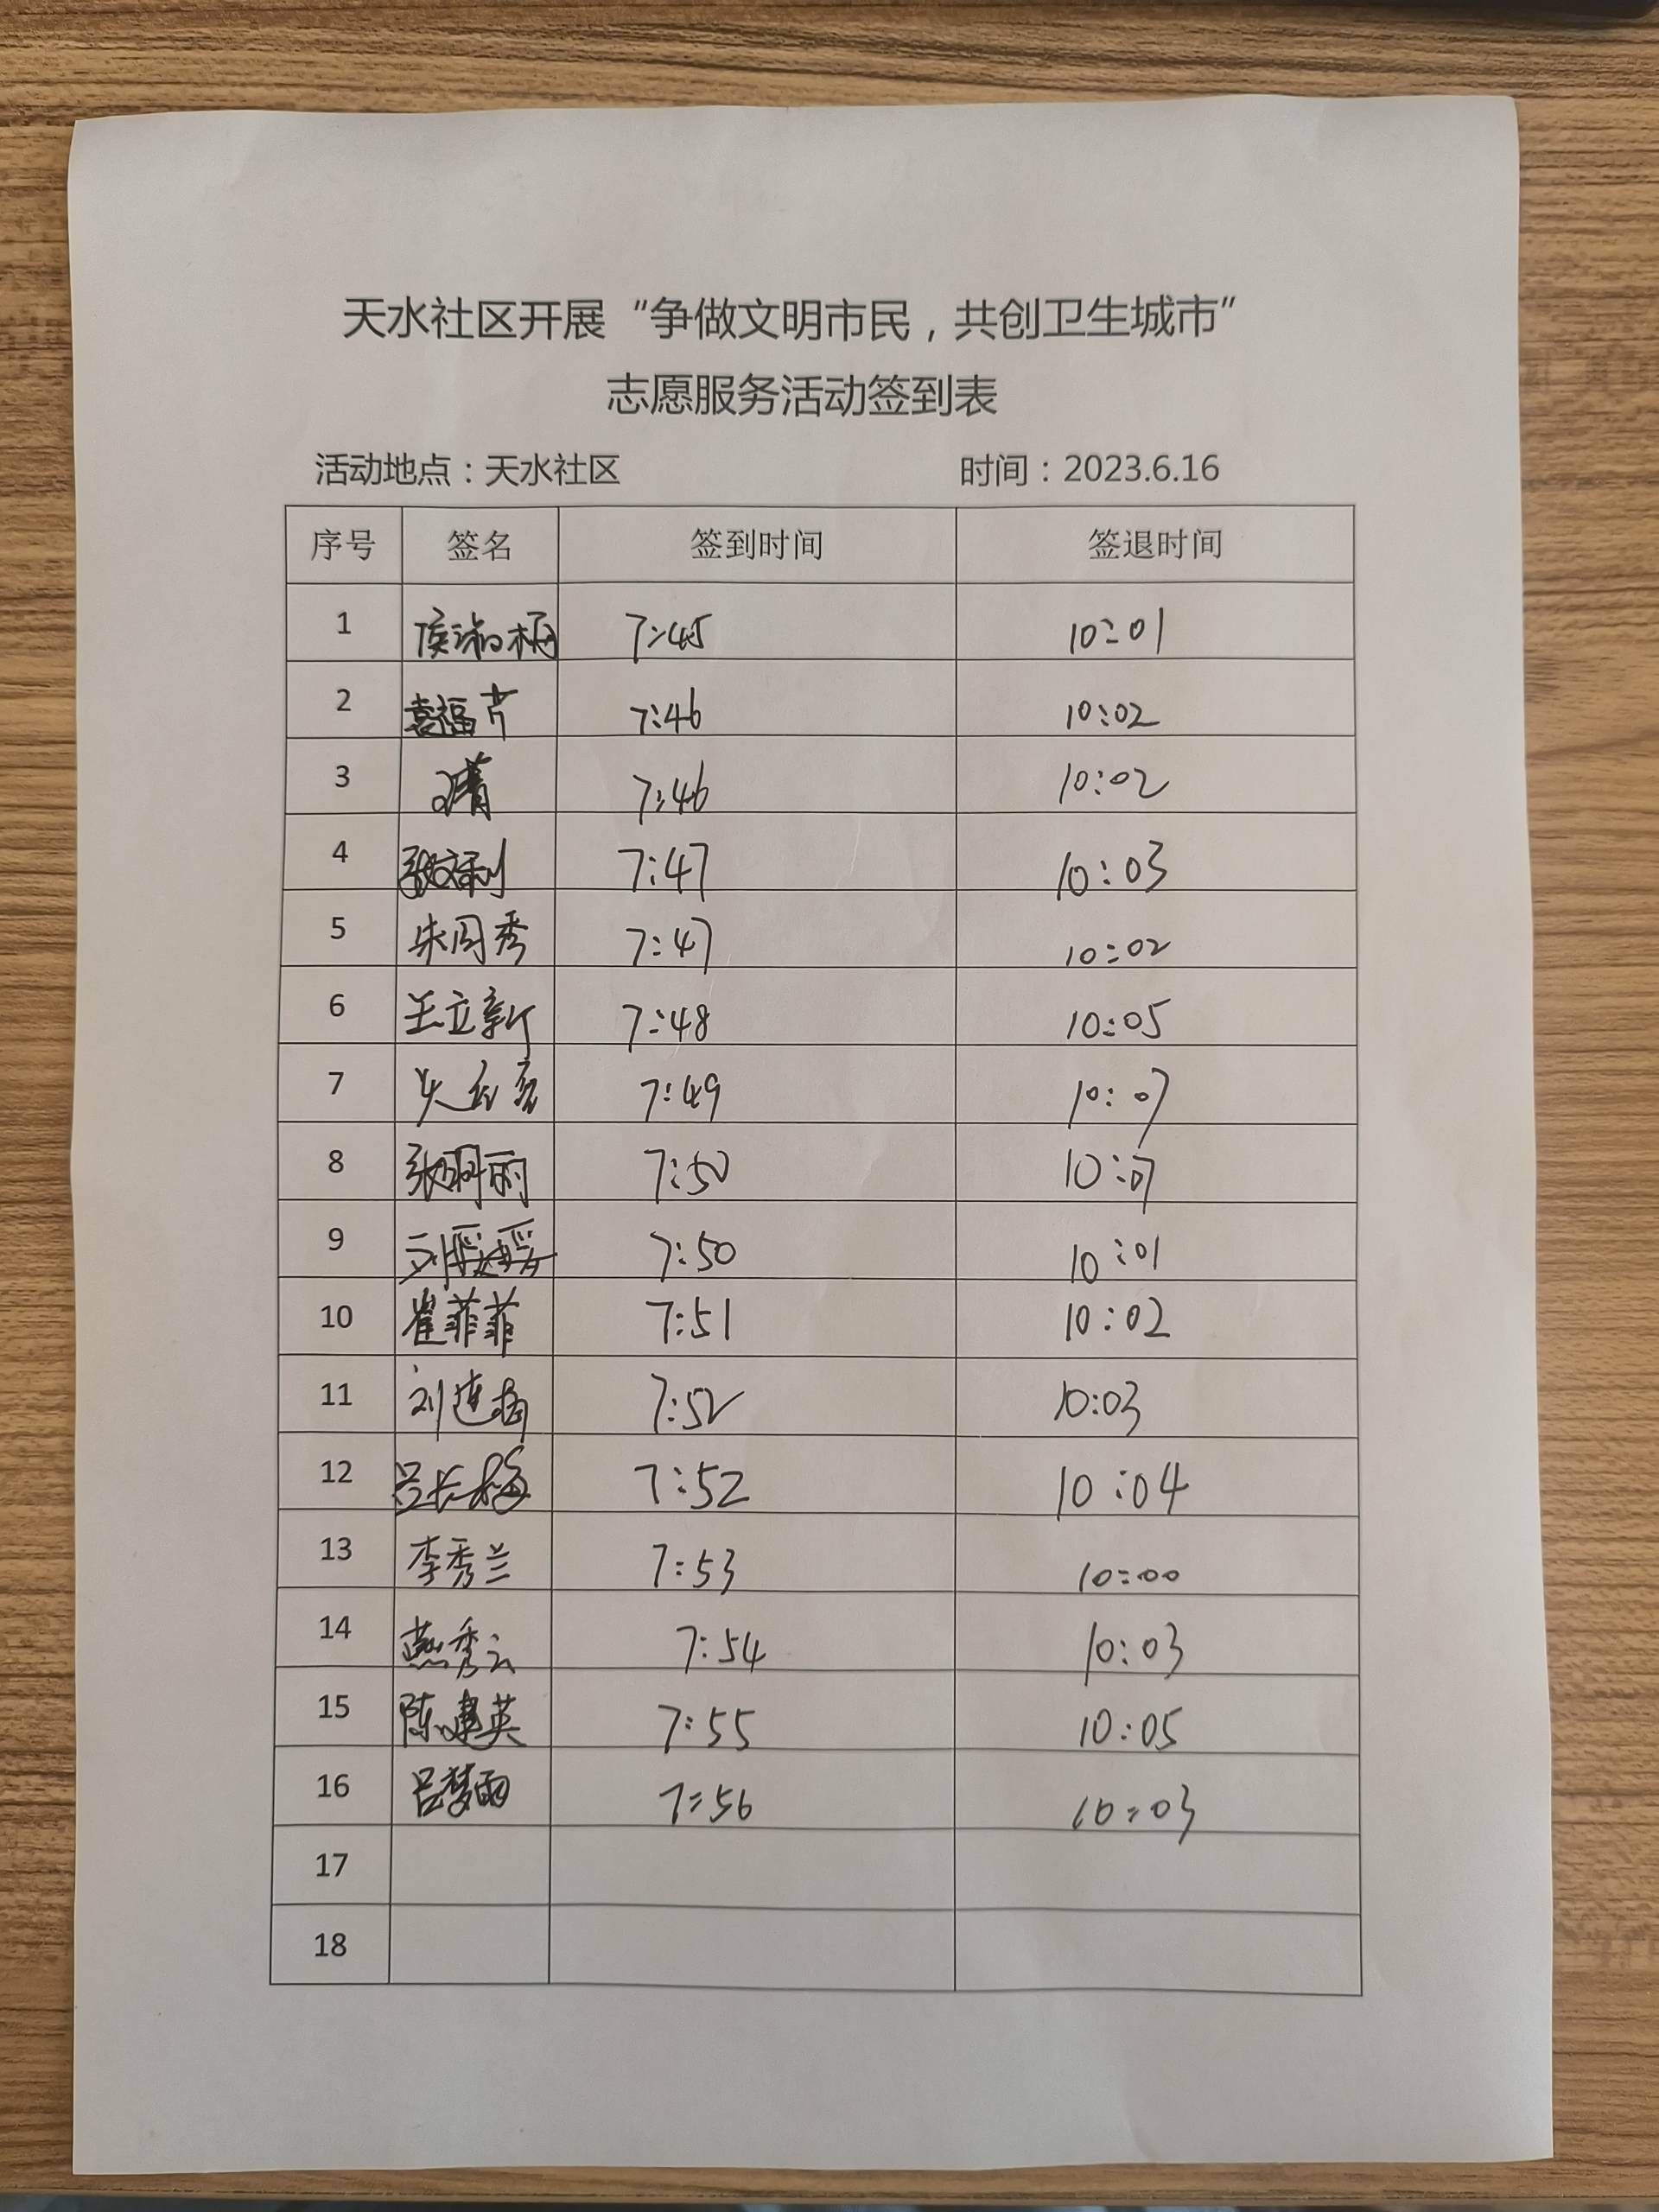 天水社区开展“争做文明市民，共创卫生城市”
志愿服务活动签到表
活动地点：天水社区 时间：2023.6.16
序号 签名 签到时间 签退时间
1 7:45 10:01
2 袁福芹 7:46 10:02
3 7:46 10:02
4 7:47 10:03
5 朱同秀 7:47 10:02
6 王立新 7:48 10:05
7 7:49 10:07
8 张明丽 7:50 10:07
9 刘媛媛 7:50 10:01
10 崔菲菲 7:51 10:02
11 7:52 10:03
12 吕长梅 7:52 10:04
13 李秀兰 7:53 10:00
14 燕秀云 7:54 10:03
15 陈建英 7:55 10:05
16 吕梦雨 7:56 10:03
17
18